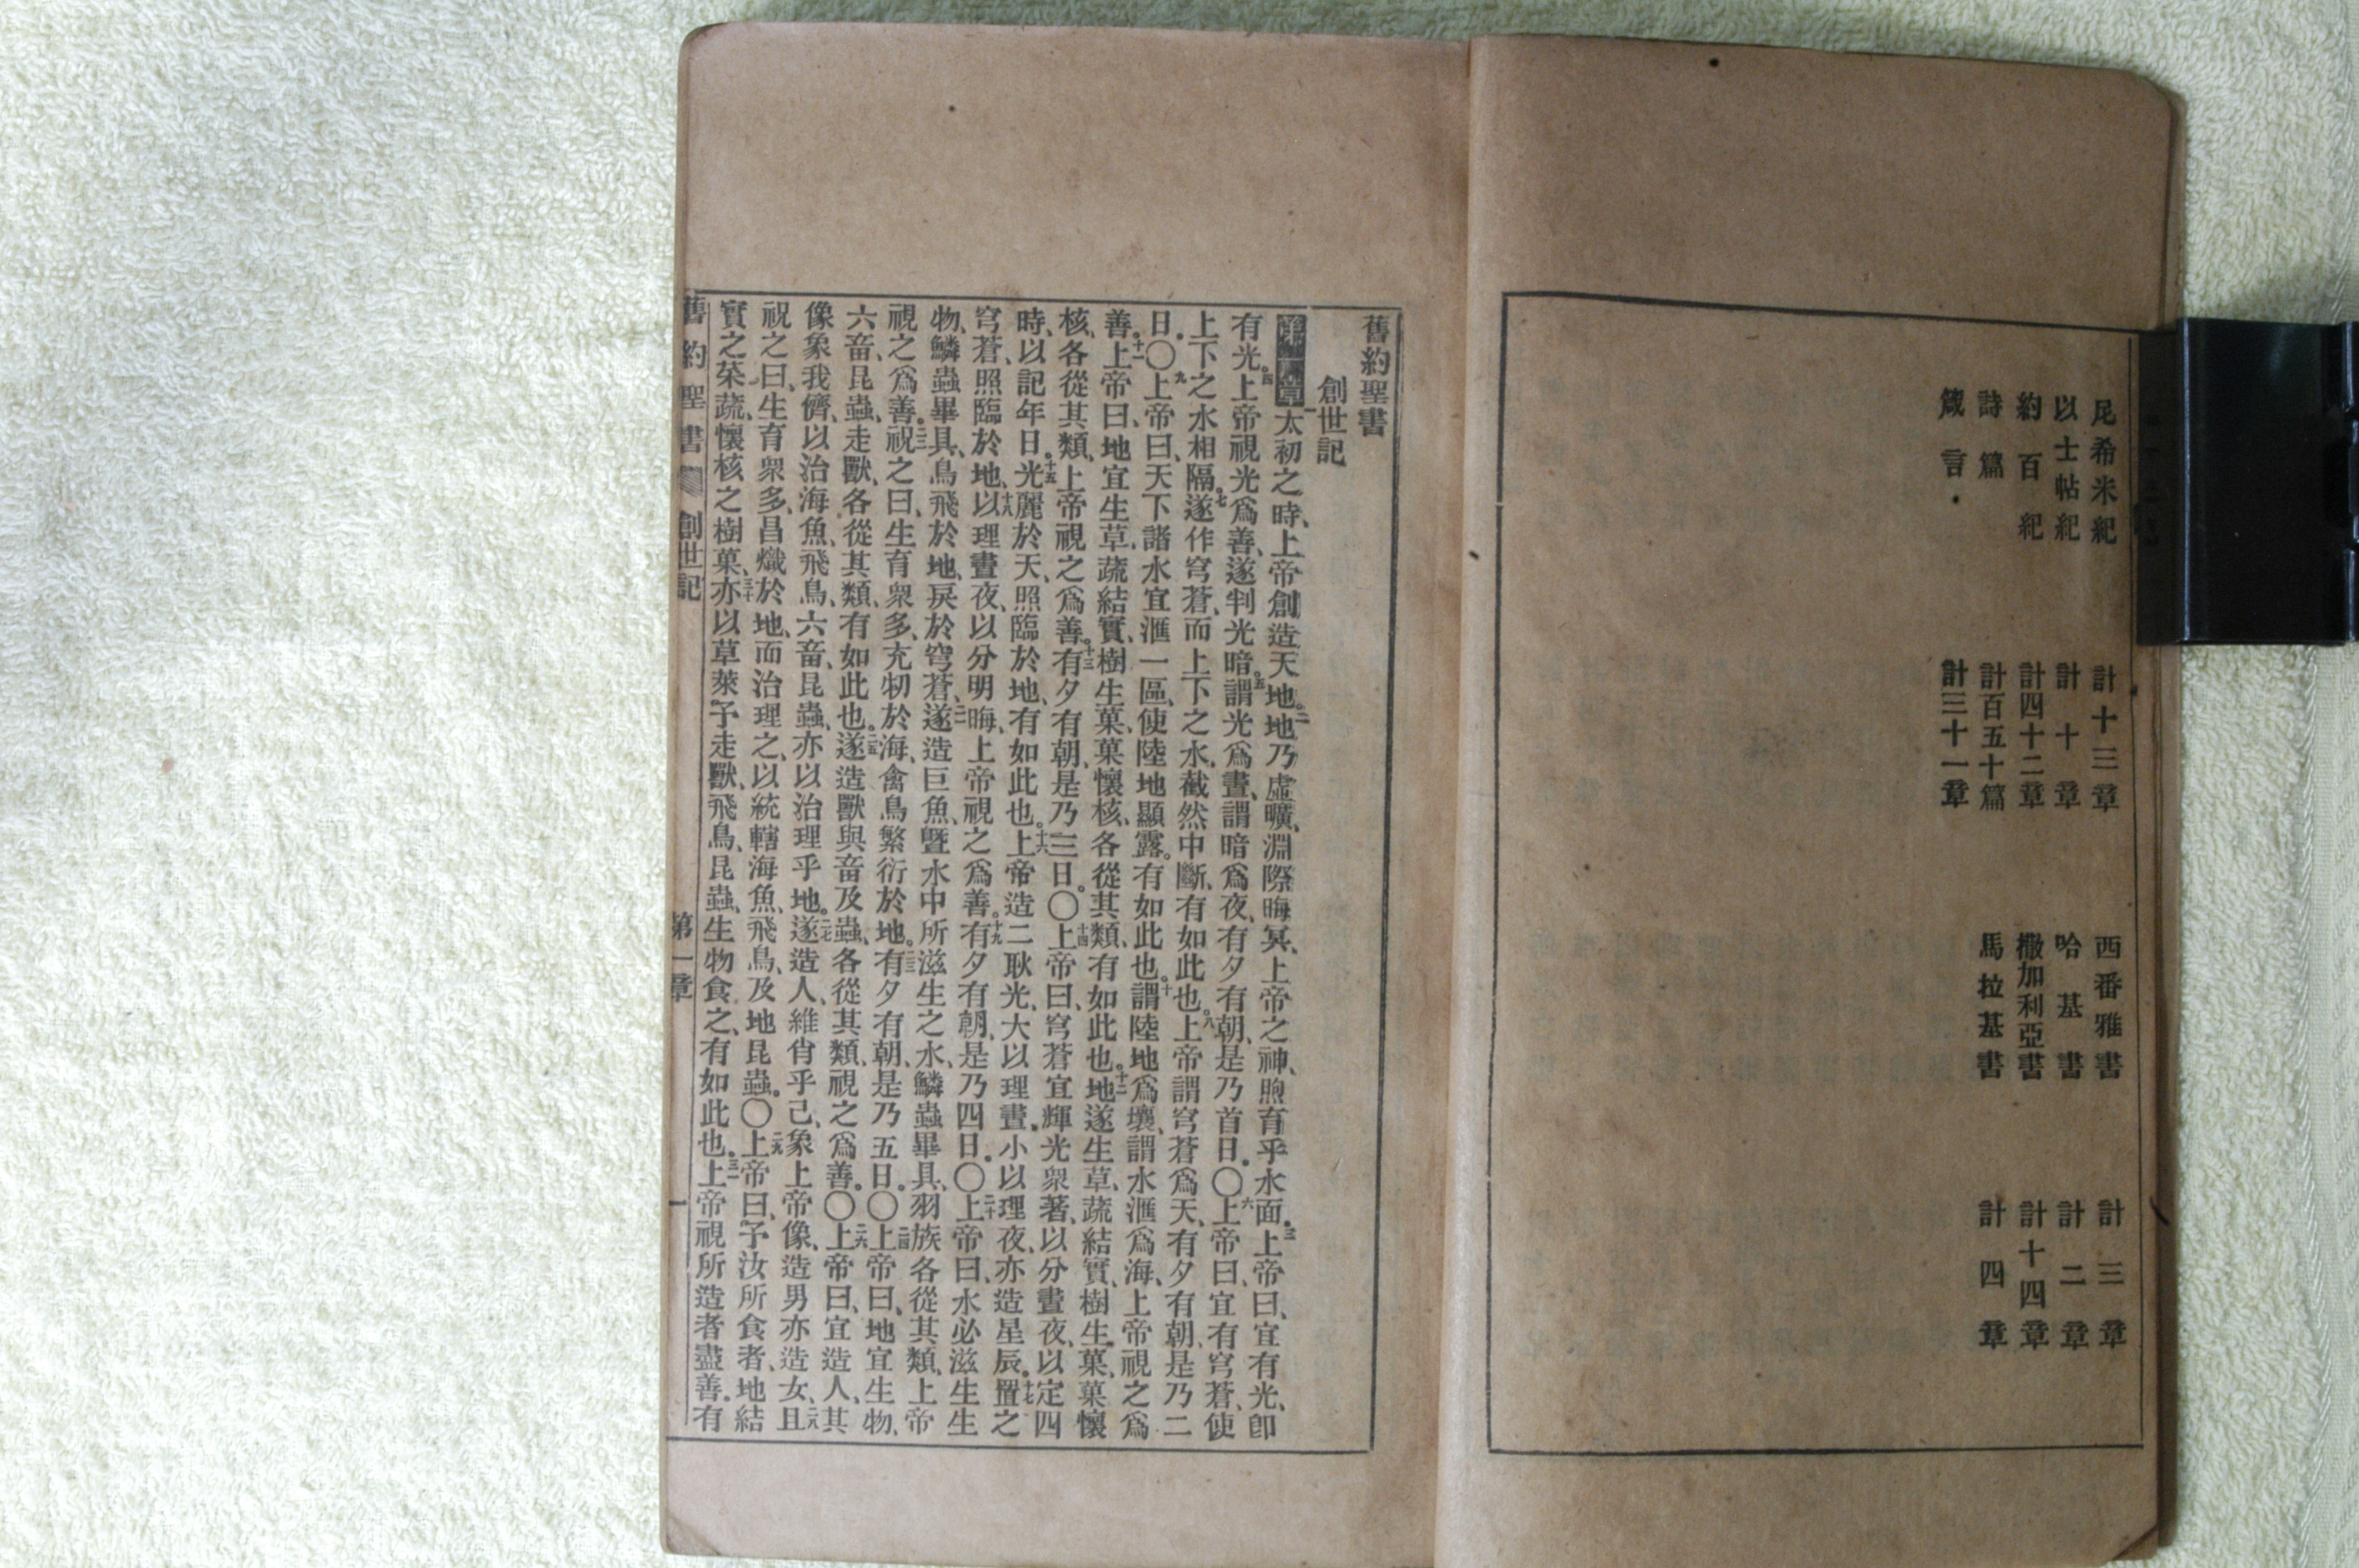 尼希米紀 計十三章 西番雅書 計三章
以士帖紀 計十章 哈基書 計二章
約百紀 計四十二章 撒加利亞書 計十四章
詩篇 計百五十篇 馬拉基書 計四章
箴言 計三十一章
舊約聖書
創世記
第一章 一太初之時、上帝創造天地。二地乃虛曠、淵際晦冥、上帝之神、煦育乎水面。三上帝曰、宜有光、即
有光。四上帝視光爲善、遂判光暗。五謂光爲晝、謂暗爲夜、有夕有朝、是乃首日。〇六上帝曰、宜有穹蒼、使
上下之水相隔。七遂作穹蒼、而上下之水、截然中斷、有如此也。八上帝謂穹蒼爲天、有夕有朝、是乃二
日。〇九上帝曰、天下諸水宜滙一區、使陸地顯露。有如此也。十謂陸地爲壤、謂水滙爲海、上帝視之爲
善。十一上帝曰、地宜生草、蔬結實、樹生菓、菓懷核、各從其類、有如此也。十二地遂生草、蔬結實、樹生菓、菓懷
核、各從其類、上帝視之爲善。十三有夕有朝、是乃三日。〇十四上帝曰、穹蒼宜輝光衆著、以分晝夜、以定四
時、以記年日。十五光麗於天、照臨於地、有如此也。十六上帝造二耿光、大以理晝、小以理夜、亦造星辰。十七置之
穹蒼、照臨於地、十八以理晝夜、以分明晦、上帝視之爲善。十九有夕有朝、是乃四日。〇二十上帝曰、水必滋生生
物、鱗蟲畢具、鳥飛於地、戾於穹蒼、二一遂造巨魚、曁水中所滋生之水、鱗蟲畢具、羽族各從其類、上帝
視之爲善。二二祝之曰、生育衆多、充牣於海、禽鳥繁衍於地。二三有夕有朝、是乃五日。〇二四上帝曰、地宜生物、
六畜、昆蟲、走獸、各從其類、有如此也。二五遂造獸與畜及蟲、各從其類、視之爲善。〇二六上帝曰、宜造人、其
像象我儕、以治海魚、飛鳥、六畜、昆蟲、亦以治理乎地。二七遂造人、維肖乎己、象上帝像、造男亦造女、二八且
祝之曰、生育衆多、昌熾於地、而治理之、以統轄海魚、飛鳥、及地昆蟲。〇二九上帝曰、予汝所食者、地結
實之菜蔬、懷核之樹菓、三十亦以草萊予走獸、飛鳥、昆蟲、生物食之、有如此也。三一上帝視所造者盡善。有
舊約聖書 創世記 第一章 一